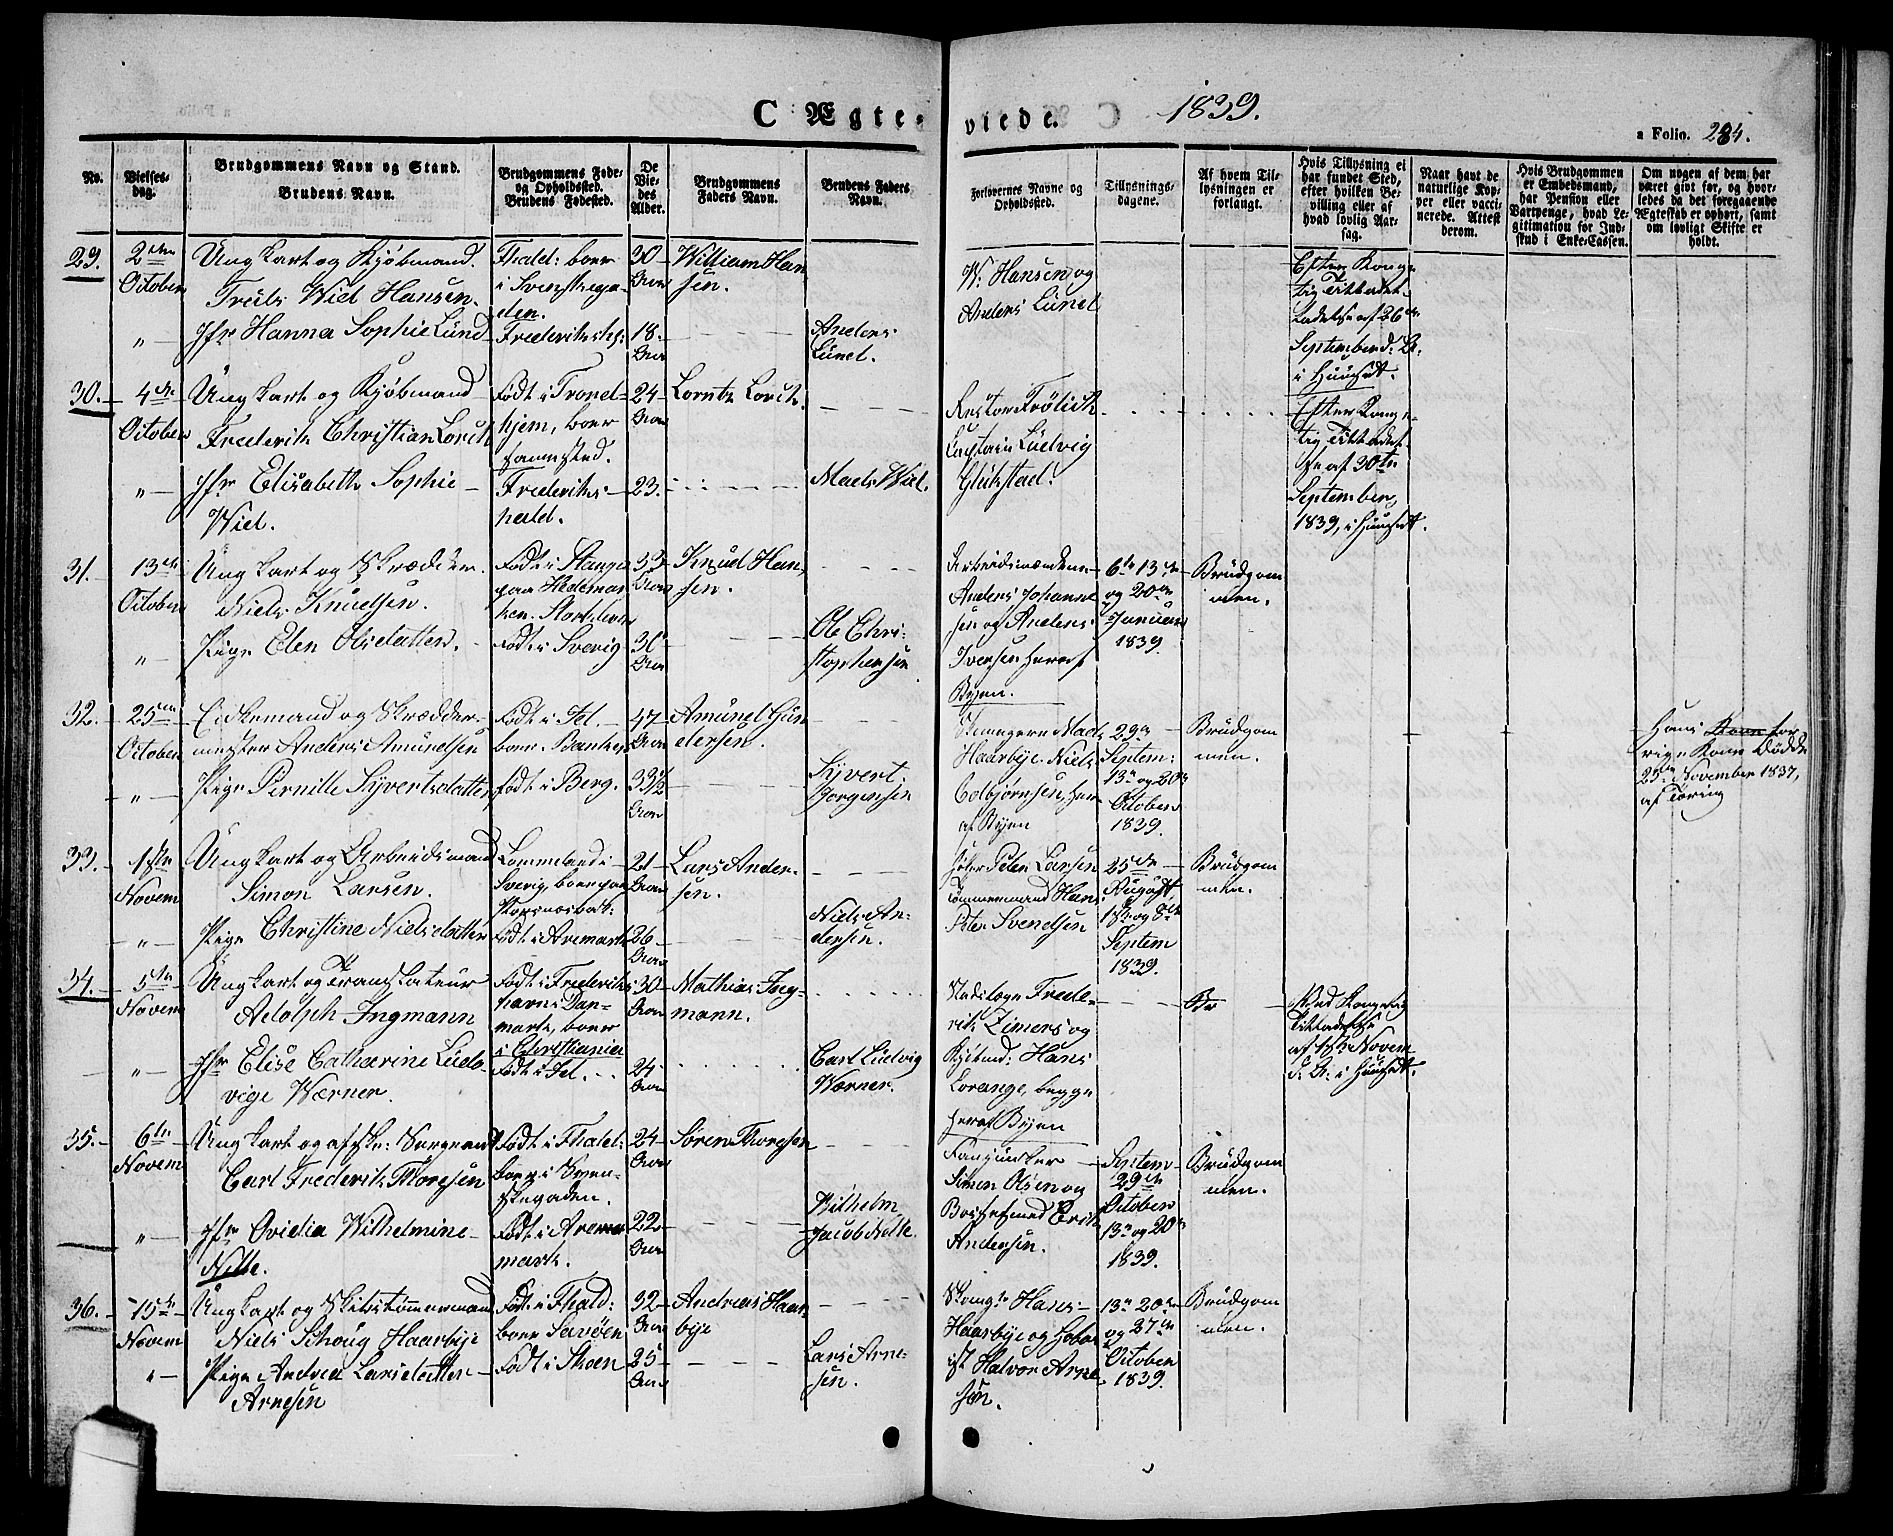 C Ægte-viede. 1839.
a Folio. 284.
No.
Vielses-
dag.
Brudgommens Navn og Stand.
Brudens Navn.
Brudgommens Føde-
og Opholdssted.
Brudens Fødested.
De
Vie-
des
Alder.
Brudgommens
Faders Navn.
Brudens Faders
Navn.
Forlovernes Navne og
Opholdssted.
Tillysnings-
dagene.
Af hvem Til-
lysningen er
forlangt.
Hvis Tillysning ei
har fundet Sted,
efter hvilken Be-
villing eller af
hvad lovlig Aar-
sag.
Naar havt de
naturlige Kop-
per eller vacci-
nerede. Attest
derom.
Hvis Brudgommen
er Embedsmand,
har Pension eller
Vartpenge, hvad Le-
gitimation for Ind-
skud i Enke-Cassen.
Om nogen af dem har
været givt før, og hvor-
ledes da det foregaaende
Ægteskab er ophørt, samt
om lovligt Skifte er
holdt.
29.
2den
October
Ungkarl og Kjøbmand
Truls Wiel Hansen.
Fhald: boer
i Svenskega-
den.
30
William Han
sen.
W. Hansen og
Anders Lund
Efter Konge
lig Tilladel.
September
"
Jfr Hanna Sophie Lund
Frederikshj:
18.
Anders
Lund.
30.
4de
October
Ungkarl og Kjøbmand
Frederik Christian Lorck
Født i Trond-
hjem, boer
sammested.
24
Lorntz Lorck.
Captain Ludvig
Glükstad.
Efter Konge-
lig Tilladel
se af 30te
September
1839,
"
Jfr Elisabeth Sophie
Wiel.
Frederiks-
hald.
23.
Mads Wiel.
31.
13de
October
Ungkarl og Skrædder
Niels Knudsen.
Født i Stange
paa Hedemar
ken.
33
Knud Han
sen.
Arbeidsmændene
Anders Johanne
sen og Anders
Iversen her af
Byen.
6te 13de
og 20de
Januar
1839.
Brudgom
men.
"
Pige Elen Olsdatter.
Født i Sverig
30
Ole Chri-
stophersen
32.
25de
October
Enkemand og Skrædder-
mester Anders Amundsen
Født i Id.
boer Banken
47
Amund Gun
dersen.
Haarbye Niels
Colbjørnsen, her
af Byen
29de
Septem:
13de og 20de
October
1839.
Brudgom
men.
Hans
rige Kone Døde
25de November 1837,
af Tæring
"
Pige Pernille Syvertsdatter
Født i Berg.
33 1/2
Syvert
Jørgensen
33.
1ste
Novem
Ungkarl og Arbeidsmand
Simon Larsen.
Sverig, boer paa
21
Lars Ander-
sen.
Peter Larsen
Tømmermand Hans
Peter Svendsen
25de
August
1ste og 8de
Septem
1839.
Brudgom
men.
"
Pige Christine Nielsdatter
Født i Aremark
26
Niels An-
dersen.
34.
5te
Novem
Ungkarl og Translateur
Adolph Ingmann
Født i Frederiks
havn i Dan-
mark, boer
i Christiania
30
Mathias Ing
mann.
Frede-
rik Zimers og
Kjøbmd: Hans
Lorange, begge
her af Byen
Br
Med Kongelig
Tilladelse
af 1ste Novem
"
Jfr Elise Catharine Lud-
vige Wærner.
Født i Id.
24
Carl Ludvig
Wærner.
35.
6te
Novem
Ungkarl og afske: Sergeant
Carl Frederik Thoresen
Født i Fhald:
boer i Sven-
skegaden.
24
Søren Thoresen
Fanejunker
Simon Olsen og
Erik
Andersen.
Septem
29de
October
13de og 20de
1839.
Brudgom
men.
"
Jfr Ovidia Wilhelmine
Nolte.
Født i Are-
mark.
22
Wilhelm
Jacob Nolte.
36.
15de
Novem
Ungkarl og Skibstømmermand
Niels Schoug Haarbye
Født i Fhald:
boer Sarøen
32
Andreas Haar
bye
Hans
Haarbye og
Halvor Arne
sen.
13de 20de
og 27de
October
1839.
Brudgom
men.
"
Pige Andrea Larsdatter
Arnesen
Født i Skoen
25
Lars Arne-
sen.